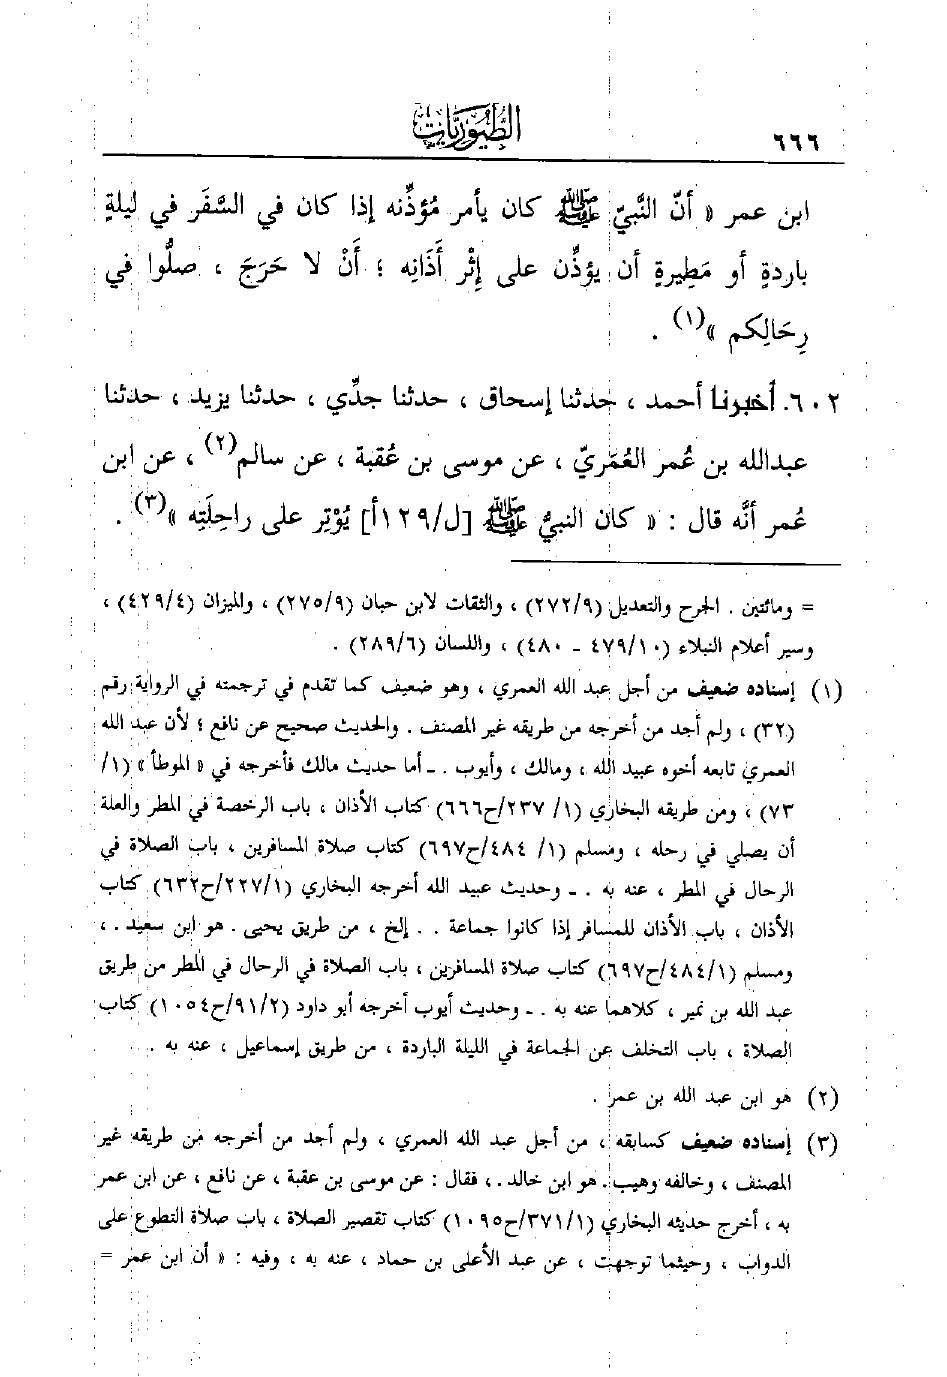 الطُّيُورِيَّات
٦٦٦
ابن عمر « أنّ النَّبيّ ﷺ كان يأمر مُؤذِّنه إذا كان في السَّفَر في ليلةٍ
باردةٍ أو مَطِيرةٍ أن يؤذِّن على إثْرِ أَذَانِه ؛ أَنْ لا حَرَجَ ، صلُّوا في
رِحَالِكم »(١) .
٦٠٢. أخبرنا أحمد ، حدثنا إسحاق ، حدثنا جدِّي ، حدثنا يزيد ، حدثنا
عبدالله بن عُمر العُمَريّ ، عن موسى بن عُقبة ، عن سالم(٢) ، عن ابن
عُمر أنَّه قال : « كان النبيُّ ﷺ [ل/١٢٩أ] يُوْتِر على راحِلَتِه »(٣) .
= ومائتين . الجرح والتعديل (٢٧٢/٩) ، والثقات لابن حبان (٢٧٥/٩) ، والميزان (٤٢٩/٤) ،
وسير أعلام النبلاء (٤٧٩/١٠ - ٤٨٠) ، واللسان (٢٨٩/٦) .
(١) إسناده ضعيف من أجل عبد الله العمري ، وهو ضعيف كما تقدم في ترجمته في الرواية رقم
(٣٢) ، ولم أجد من أخرجه من طريقه غير المصنف . والحديث صحيح عن نافع ؛ لأن عبد الله
العمري تابعه أخوه عبيد الله ، ومالك ، وأيوب . ـ أما حديث مالك فأخرجه في « الموطأ » (١/
٧٣) ، ومن طريقه البخاري (١/ ٢٣٧/ح٦٦٦) كتاب الأذان ، باب الرخصة في المطر والعلة
أن يصلي في رحله ، ومسلم (١/ ٤٨٤/ح٦٩٧) كتاب صلاة المسافرين ، باب الصلاة في
الرحال في المطر ، عنه به . ـ وحديث عبيد الله أخرجه البخاري (٢٢٧/١/ح٦٣٢) كتاب
الأذان ، باب الأذان للمسافر إذا كانوا جماعة . . إلخ ، من طريق يحيى . هو ابن سعيد . ،
ومسلم (٤٨٤/١/ح٦٩٧) كتاب صلاة المسافرين ، باب الصلاة في الرحال في المطر من طريق
عبد الله بن نمير ، كلاهما عنه به . ـ وحديث أيوب أخرجه أبو داود (٩١/٢/ح١٠٥٤) كتاب
الصلاة ، باب التخلف عن الجماعة في الليلة الباردة ، من طريق إسماعيل ، عنه به .
(٢) هو ابن عبد الله بن عمر .
(٣) إسناده ضعيف كسابقه ، من أجل عبد الله العمري ، ولم أجد من أخرجه من طريقه غير
المصنف ، وخالفه وهيب . هو ابن خالد . ، فقال : عن موسى بن عقبة ، عن نافع ، عن ابن عمر
به ، أخرج حديثه البخاري (٣٧١/١/ح١٠٩٥) كتاب تقصير الصلاة ، باب صلاة التطوع على
الدواب ، وحيثما توجهت ، عن عبد الأعلى بن حماد ، عنه به ، وفيه : « أن ابن عمر =